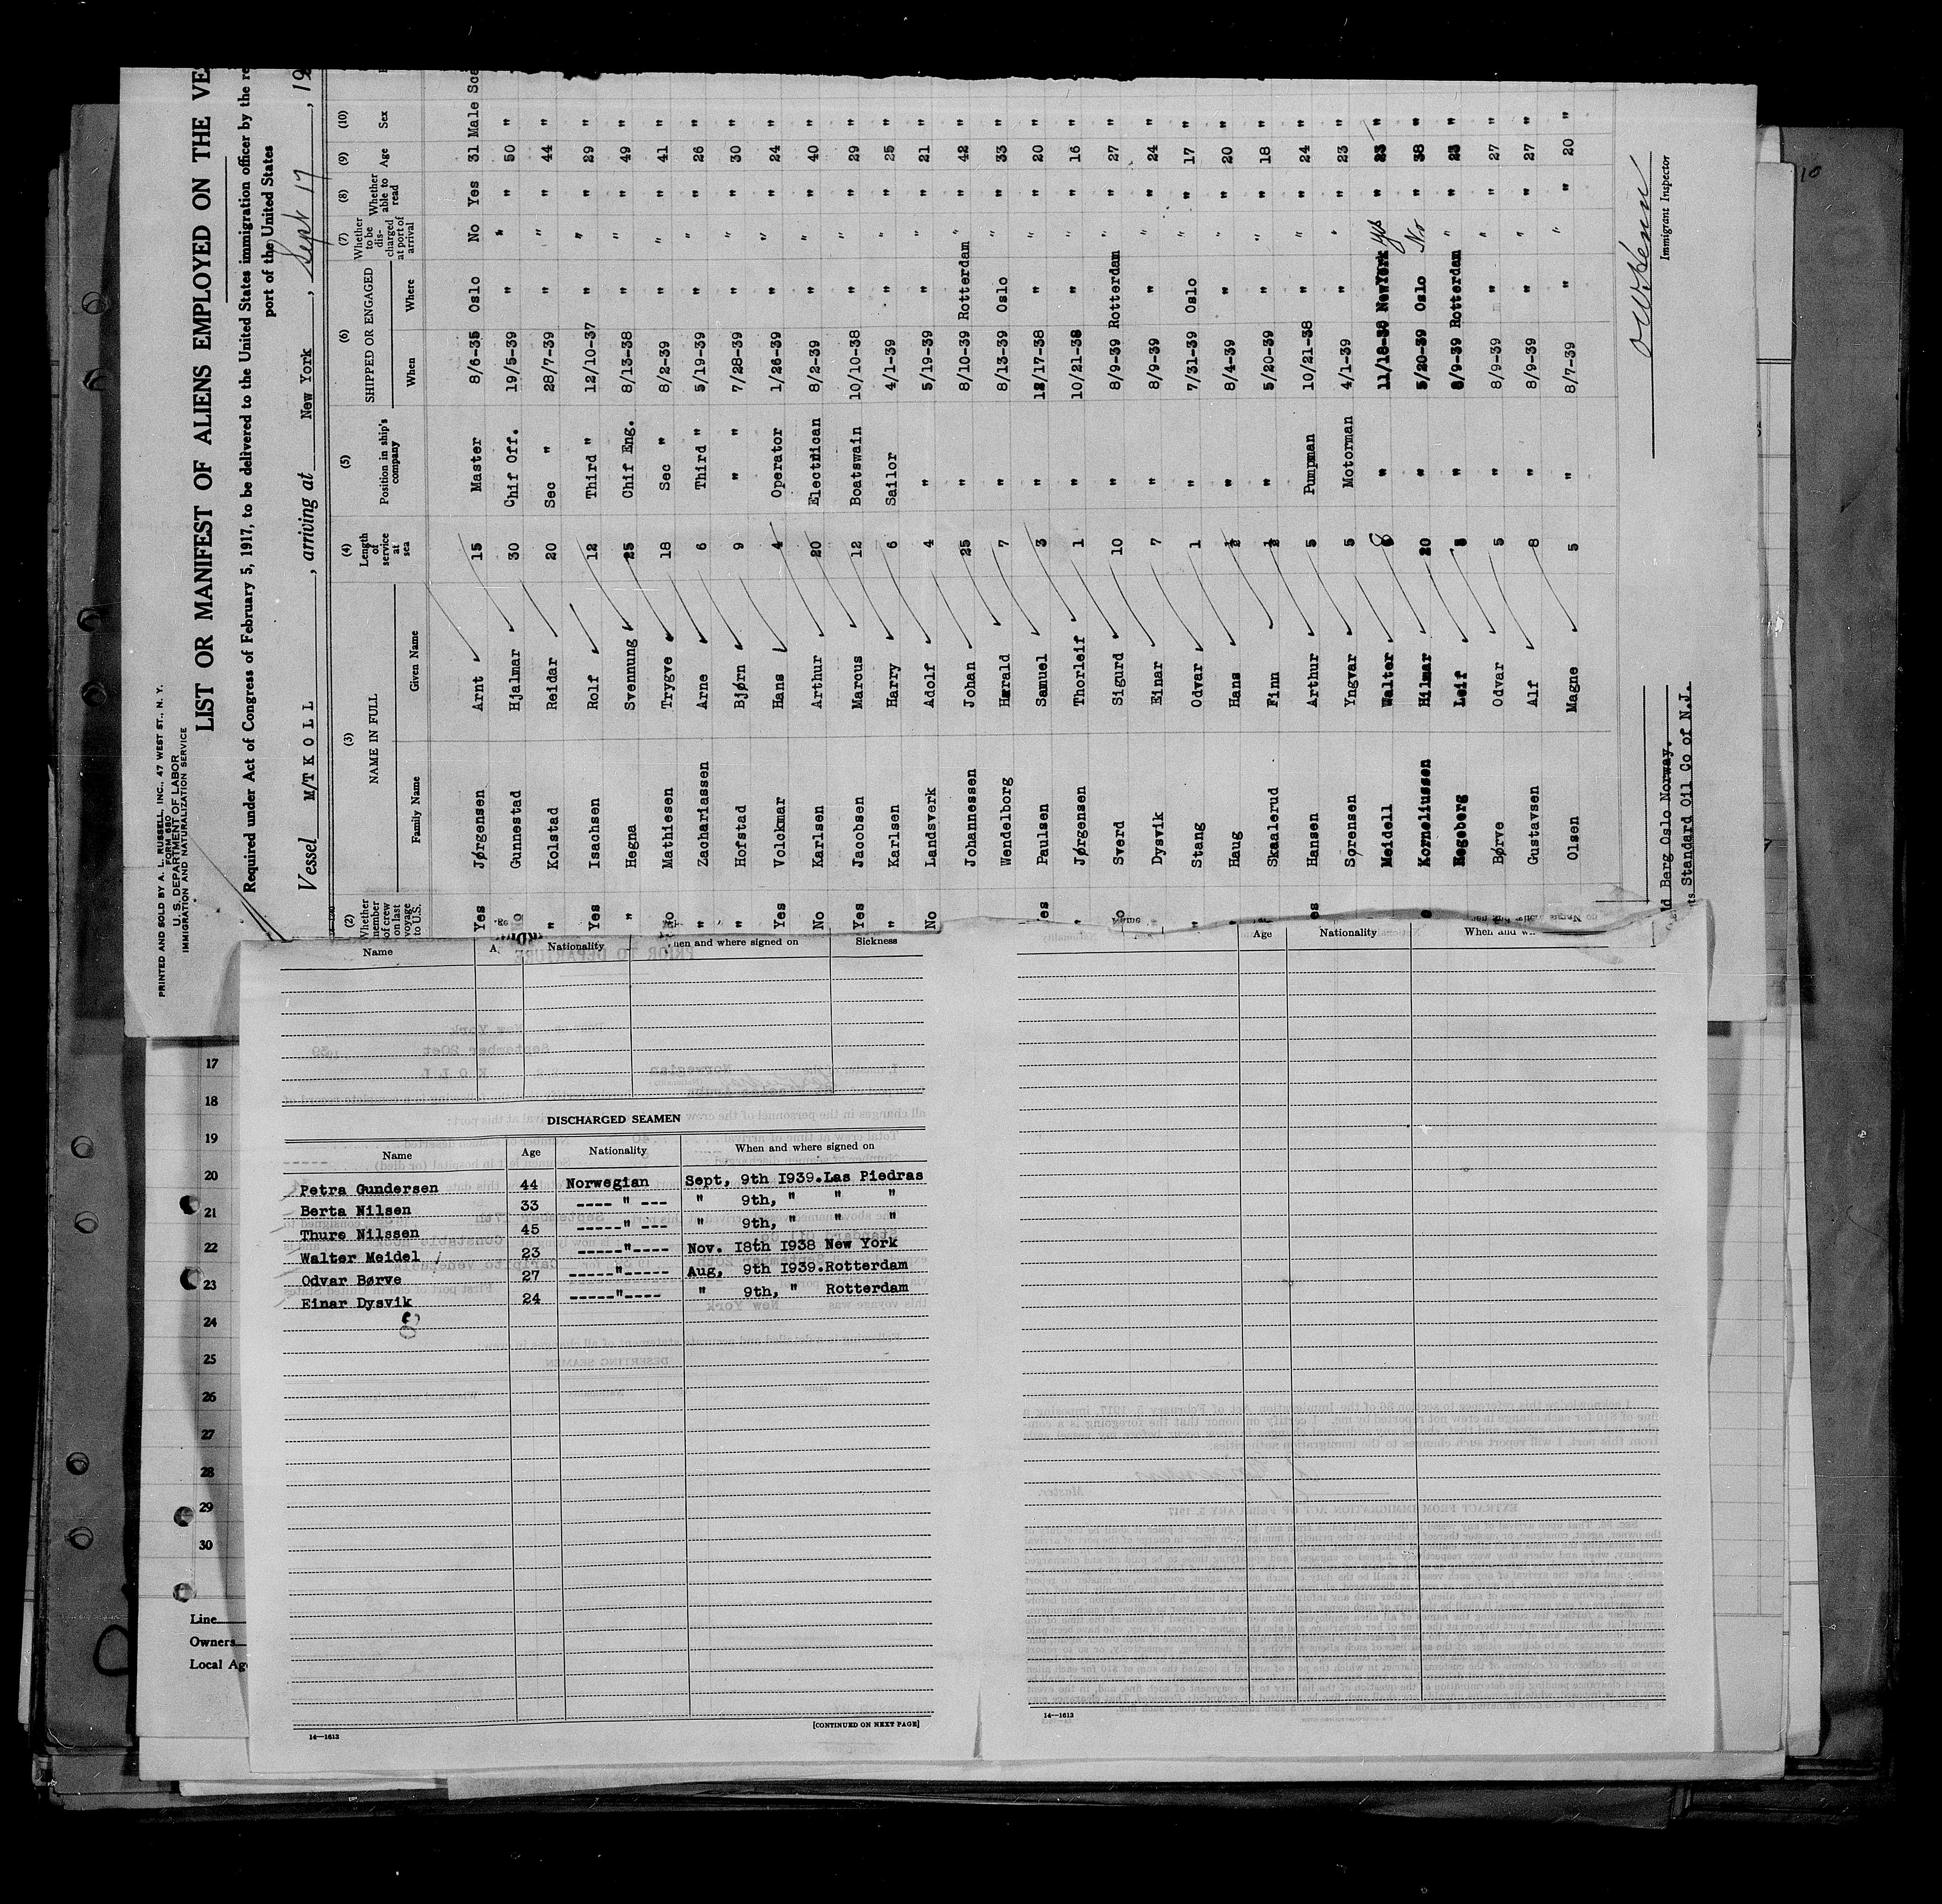 PRINTED AND SOLD BY A. L. RUSSELL, INC., 47 WEST ST., N. Y.
FORM 680
U. S. DEPARTMENT OF LABOR
IMMIGRATION AND NATURALIZATION SERVICE
LIST OR MANIFEST OF ALIENS EMPLOYED ON THE VE
Required under Act of Congress of February 5, 1917, to be delivered to the United States immigration officer by the re
port of the United States
Vessel M/T K O L L , arriving at New York , Sept 17 , 19
(2) (3) (4) (5) (6) (7) (8) (9) (10)
Whether member of crew on last voyage to U.S. NAME IN FULL Length of service at sea Position in ship's company SHIPPED OR ENGAGED Whether to be discharged at port of arrival Whether able to read Age Sex
Family Name Given Name When Where
Yes Jørgensen Arnt 15 Master 8/6-35 Oslo No Yes 31 Male Sca
Gunnestad Hjalmar 30 Chif Off. 19/5-39 " " " 50 "
" Kolstad Reidar 20 Sec " 28/7-39 " " " 44 "
Yes Isachsen Rolf 12 Third " 12/10-37 " " " 29 "
" Hegna Svennung 25 Chif Eng. 8/13-38 " " " 49 "
No Mathiesen Trygve 18 Sec " 8/2-39 " " " 41 "
" Zachariassen Arne 6 Third " 5/19-39 " " " 26 "
" Hofstad Bjørn 9 " " 7/28-39 " " " 30 "
Yes Volckmar Hans 4 Operator 1/26-39 " " " 24 "
No Karlsen Arthur 20 Electrican 8/2-39 " " " 40 "
Yes Jacobsen Marcus 12 Boatswain 10/10-38 " " " 29 "
" Karlsen Harry 6 Sailor 4/1-39 " " " 25 "
No Landsverk Adolf 4 " 5/19-39 " " " 21 "
Johannessen Johan 25 " 8/10-39 Rotterdam " " 42 "
Wendelborg Harald 7 " 8/13-39 Oslo " " 33 "
es Paulsen Samuel 3 " 12/17-38 " " " 20 "
" Jørgensen Thorleif 1 " 10/21-38 " " " 16 "
No Sverd Sigurd 10 " 8/9-39 Rotterdam " " 27 "
" Dysvik Einar 7 " 8/9-39 " " " 24 "
" Stang Odvar 1 " 7/31-39 Oslo " " 17 "
Haug Hans ½ " 8/4-39 " " " 20 "
Skaalerud Finn ½ " 5/20-39 " " " 18 "
es Hansen Arthur 5 Pumpman 10/21-38 " " " 24 "
Sørensen Yngvar 5 Motorman 4/1-39 " " " 23 "
Meidell Walter 8 " 11/18-38 NewYork yes " 23 "
Korneliussen Hilmar 20 " 5/20-39 Oslo No " 38 "
Hegeberg Leif " 8/9-39 Rotterdam " " 23 "
Børve Odvar 5 " 8/9-39 " " " 27 "
Gustavsen Alf 8 " 8/9-39 " " " 27 "
Olsen Magne 5 " 8/7-39 " " 20 "
ld Berg Oslo Norway.
ts Standard Oil Co of N.J.
Immigrant Inspector
Name Nationality en and where signed on Sickness
Age Nationality When and w
DISCHARGED SEAMEN
Name Age Nationality When and where signed on
Petra Gundersen 44 Norwegian Sept, 9th 1939.Las Piedras
Berta Nilsen 33 ---- " --- " 9th, " " "
Thure Nilssen 45 -----" --- " 9th, " " "
Walter Meidel 23 -----"---- Nov. 18th 1938 New York
Odvar Børve 27 -----"----- Aug, 9th 1939.Rotterdam
Einar Dysvik 24 -----"---- " 9th, " Rotterdam
[CONTINUED ON NEXT PAGE]
14—1613
14—1613
17
18
19
20
21
22
23
24
25
26
27
28
29
30
Line
Owners
Local Ag
10